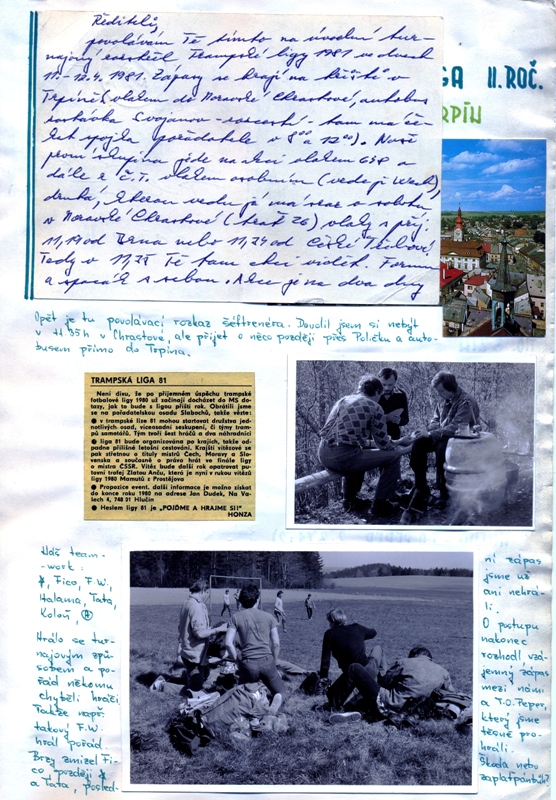 GA II.ROČ.
RPÍN
Řediteli,
povolávám Tě tímto na úvodní tur-
najový Trampské ligy 1981 ve dnech
11.-12.4. 1981. Zápasy se hrají na hřišti v
Trpíně (vlakem do Moravské Chrastové, autobus
zastávka Svojanov - rozcestí - tam má
spojka pořadatele v 8⁰⁰ a 12⁰⁰). Naše
první skupina jede na akci vlakem a
dále z Č.T. vlakem osobním (vede ji Wech),
druhá, kterou vedu já má sraz v sobotu
v Moravské Chrastové (trať 26) vlaky s příj.
11,19 od Brna nebo 11,34 od České Třebové.
Tedy v 11,35 Tě tam chci vidět.
a spacák s sebou. Akce je na dva dny
Opět je tu povolávací rozkaz šéftrenéra. Dovolil jsem si nebýt
v 11.35h v Chrastové, ale přijet o něco později přes Poličku a auto-
busem přímo do Trpína.
TRAMPSKÁ LIGA 81
Není divu, že po příjemném úspěchu trampské
fotbalové ligy 1980 už začínají docházet do MS do-
tazy, jak to bude s ligou příští rok. Obrátili jsme
se na pořadatelskou osadu Slabochů, takže vězte:
● v trampské lize 81 mohou startovat družstva jed-
notlivých osad, víceosadní seskupení, či týmy tram-
pů samotářů. Tým tvoří šest hráčů a dva náhradníci
● liga 81 bude organizována po krajích, takže od-
padne přílišné letošní cestování. Krajští vítězové se
pak střetnou o tituly mistrů Čech, Moravy a Slo-
venska a současně o právo hrát ve finále ligy
o mistra ČSSR. Vítěz bude další rok opatrovat pu-
tovní trofej Zlatou Arču, která je nyní v rukou vítězů
ligy 1980 Mamutů z Prostějova
● Propozice event. další informace je možno získat
do konce roku 1980 na adrese Jan Dudek, Na Va-
lech 4, 748 01 Hlučín
● Heslem ligy 81 je „POJĎME A HRAJME SI!"
HONZA
Náš team-
-work:
Fico, F.W.,
Halama, Tata,
Koloň,
Hrálo se tur-
najovým způ-
sobem a po-
řád někomu
chyběli hráči.
Takže např.
takový F.W.
hrál pořád.
Brzy zmizel Fi-
co později
a Tata, posled-
ní zápas
jsme už
ani nehrá-
li.
O postupu
nakonec
rozhodl vzá-
jemný zápas
mezi námi
a T.O. Peper,
který jsme
těsně pro-
hráli.
Škoda nebo
zaplaťpánbůh?